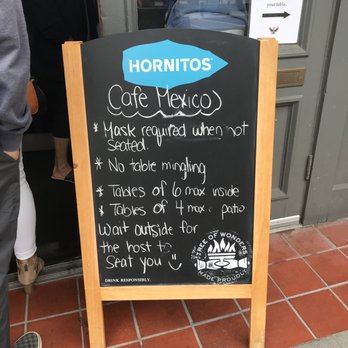 your table.
HORNITOS
Cafe Mexico
* Mask required when not
seated.
* No table mingling
* Tables of 6 max inside
* Tables of 4 max. patio
Wait outside for
the host to
Seat you
TREE OF WONDERS
MADE PROUDLY
DRINK RESPONSIBLY.